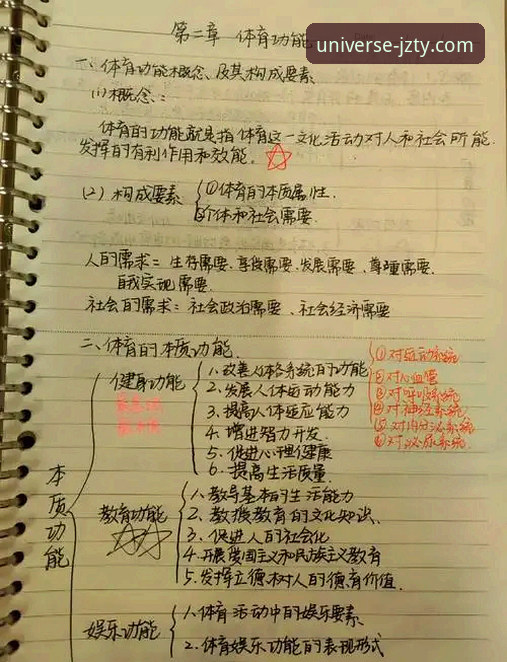 第二章 体育功能
universe-jzty.com
一、体育功能概念、及其构成要素
(1)概念:
体育的功能就是指体育这一文化活动对人和社会所能
发挥的有利作用和效能。
(2) 构成要素 ①体育的本质属性.
②个体和社会需要.
人的需求: 生存需要、享受需要、发展需要、尊重需要、
自我实现需要.
社会的需求: 社会政治需要、社会经济需要
二、体育的本质功能.
本质功能
健身功能
1.改善人体各系统的功能
2.发展人体运动能力
3.提高人体适应能力
4.增进智力开发.
5.促进心理健康
6.提高生活质量.
①对运动系统
②对心血管
③对呼吸系统
④对神经系统
⑤对内分泌系统
⑥对泌尿系统
教育功能
1.教导基本的生活能力
2.教授教育的文化知识.
3.促进人的社会化
4.开展爱国主义和民族主义教育
5.发挥立德树人的德育价值.
娱乐功能
1.体育活动中的娱乐要素.
2.体育娱乐功能的表现形式